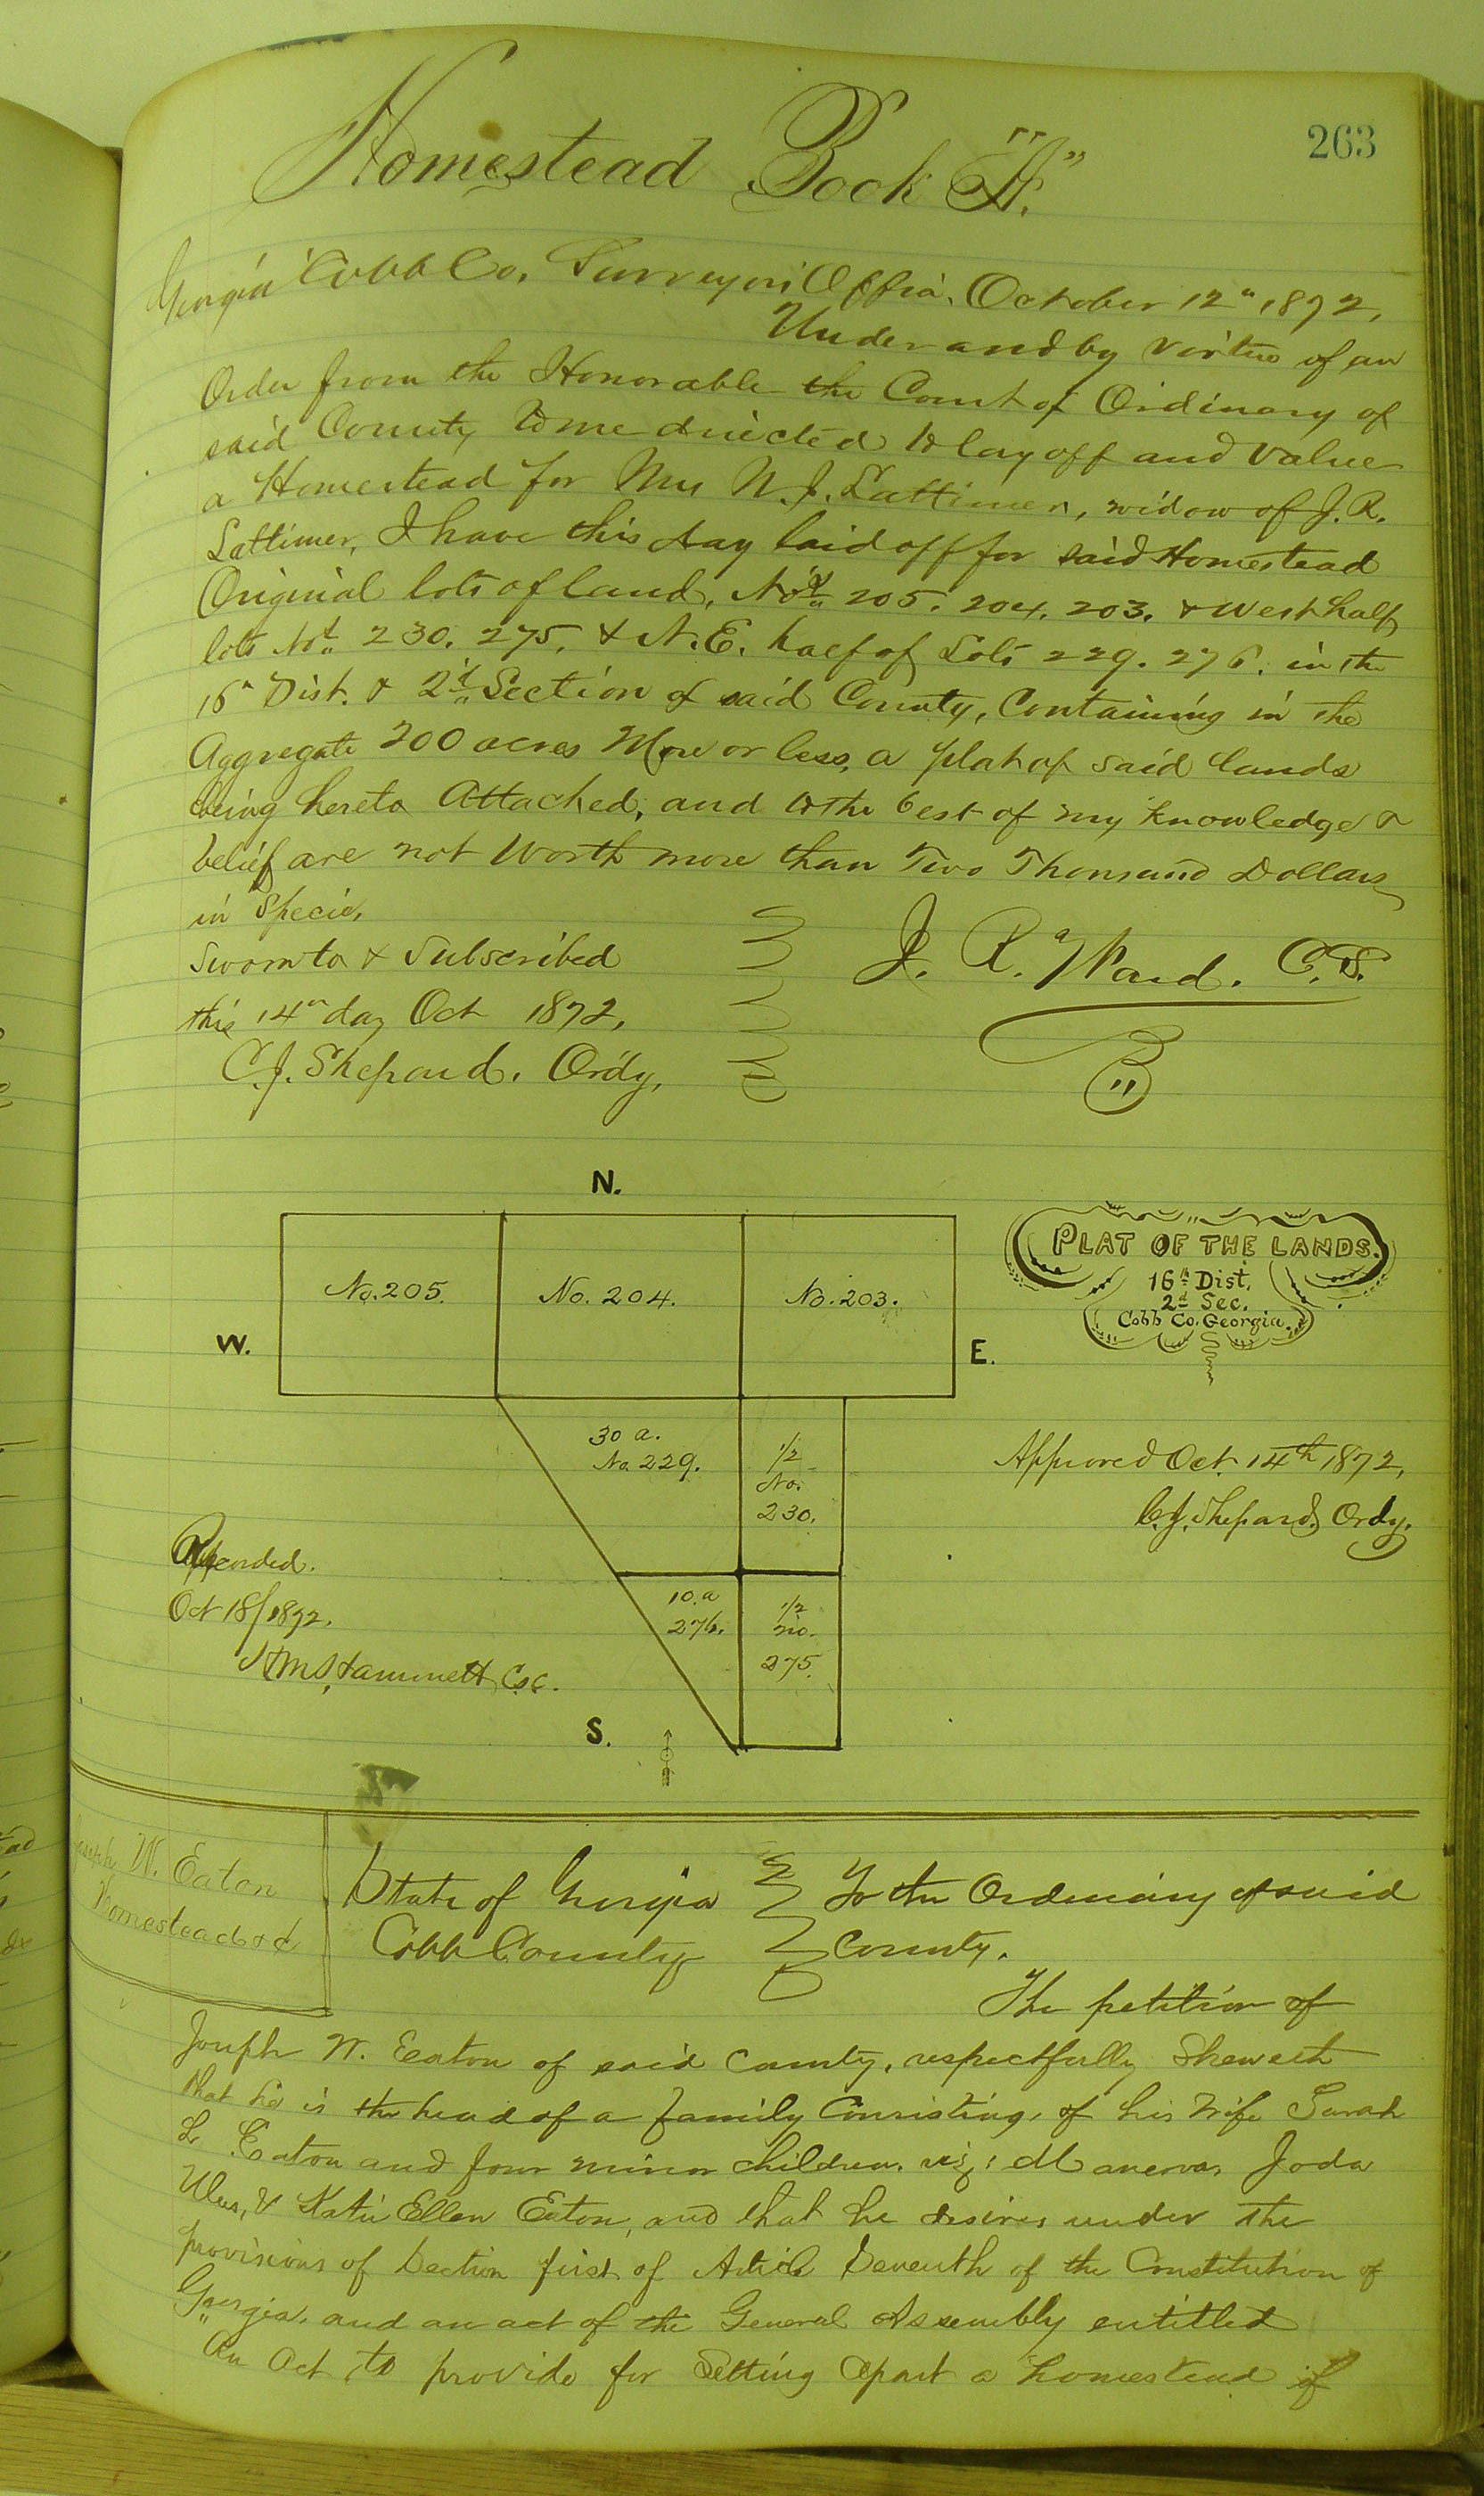 263
Homestead Book "A."
Georgia Cobb Co. Surveyors Office. October 12" 1872,
Under and by virtue of an
Order from the Honorable the Court of Ordinary of
said County to me directed to lay off and value
a Homestead for Mrs N. J. Lattimer, widow of J. R.
Lattimer, I have this day laid off for said Homestead
Original lots of land, Nos 205. 204. 203. & West half
lots Nos 230. 275, & N. E. half of Lots 229. 276. in the
16" Dist. & 2d Section of said County, Containing in the
Aggregate 200 acres More or less, a plat of said lands
being hereto Attached, and to the best of my knowledge &
belief are not worth more than Two Thousand Dollars
in Specie,
Sworn to & Subscribed
this 14" day Oct 1872,
C. J. Shepard. Ord'y,
J. R. Ward. C. S.
N.
No. 205.
No. 204.
No. 203.
W.
E.
PLAT OF THE LANDS.
16th Dist.
2d Sec.
Cobb Co. Georgia.
30 a.
No. 229.
1/2
No.
230.
Approved Oct. 14th 1872,
C. J. Shepard. Ordy.
10. a
276.
1/2
no.
275.
Recorded.
Oct 18/1872.
Hammett C.S.C.
S.
Joseph W. Eaton
Homestead &c
State of Georgia
Cobb County
To the Ordinary of said
County.
The petition of
Joseph W. Eaton of said County, respectfully Sheweth
that he is the head of a family Consisting, of his Wife Sarah
L Eaton and four minor children, viz: Manerva, Joda
& Katie Ellen Eaton, and that he desires under the
provisions of Section first of Article Seventh of the Constitution of
Georgia, and an act of the General Assembly entitled
"An Act to provide for Setting Apart a homestead of